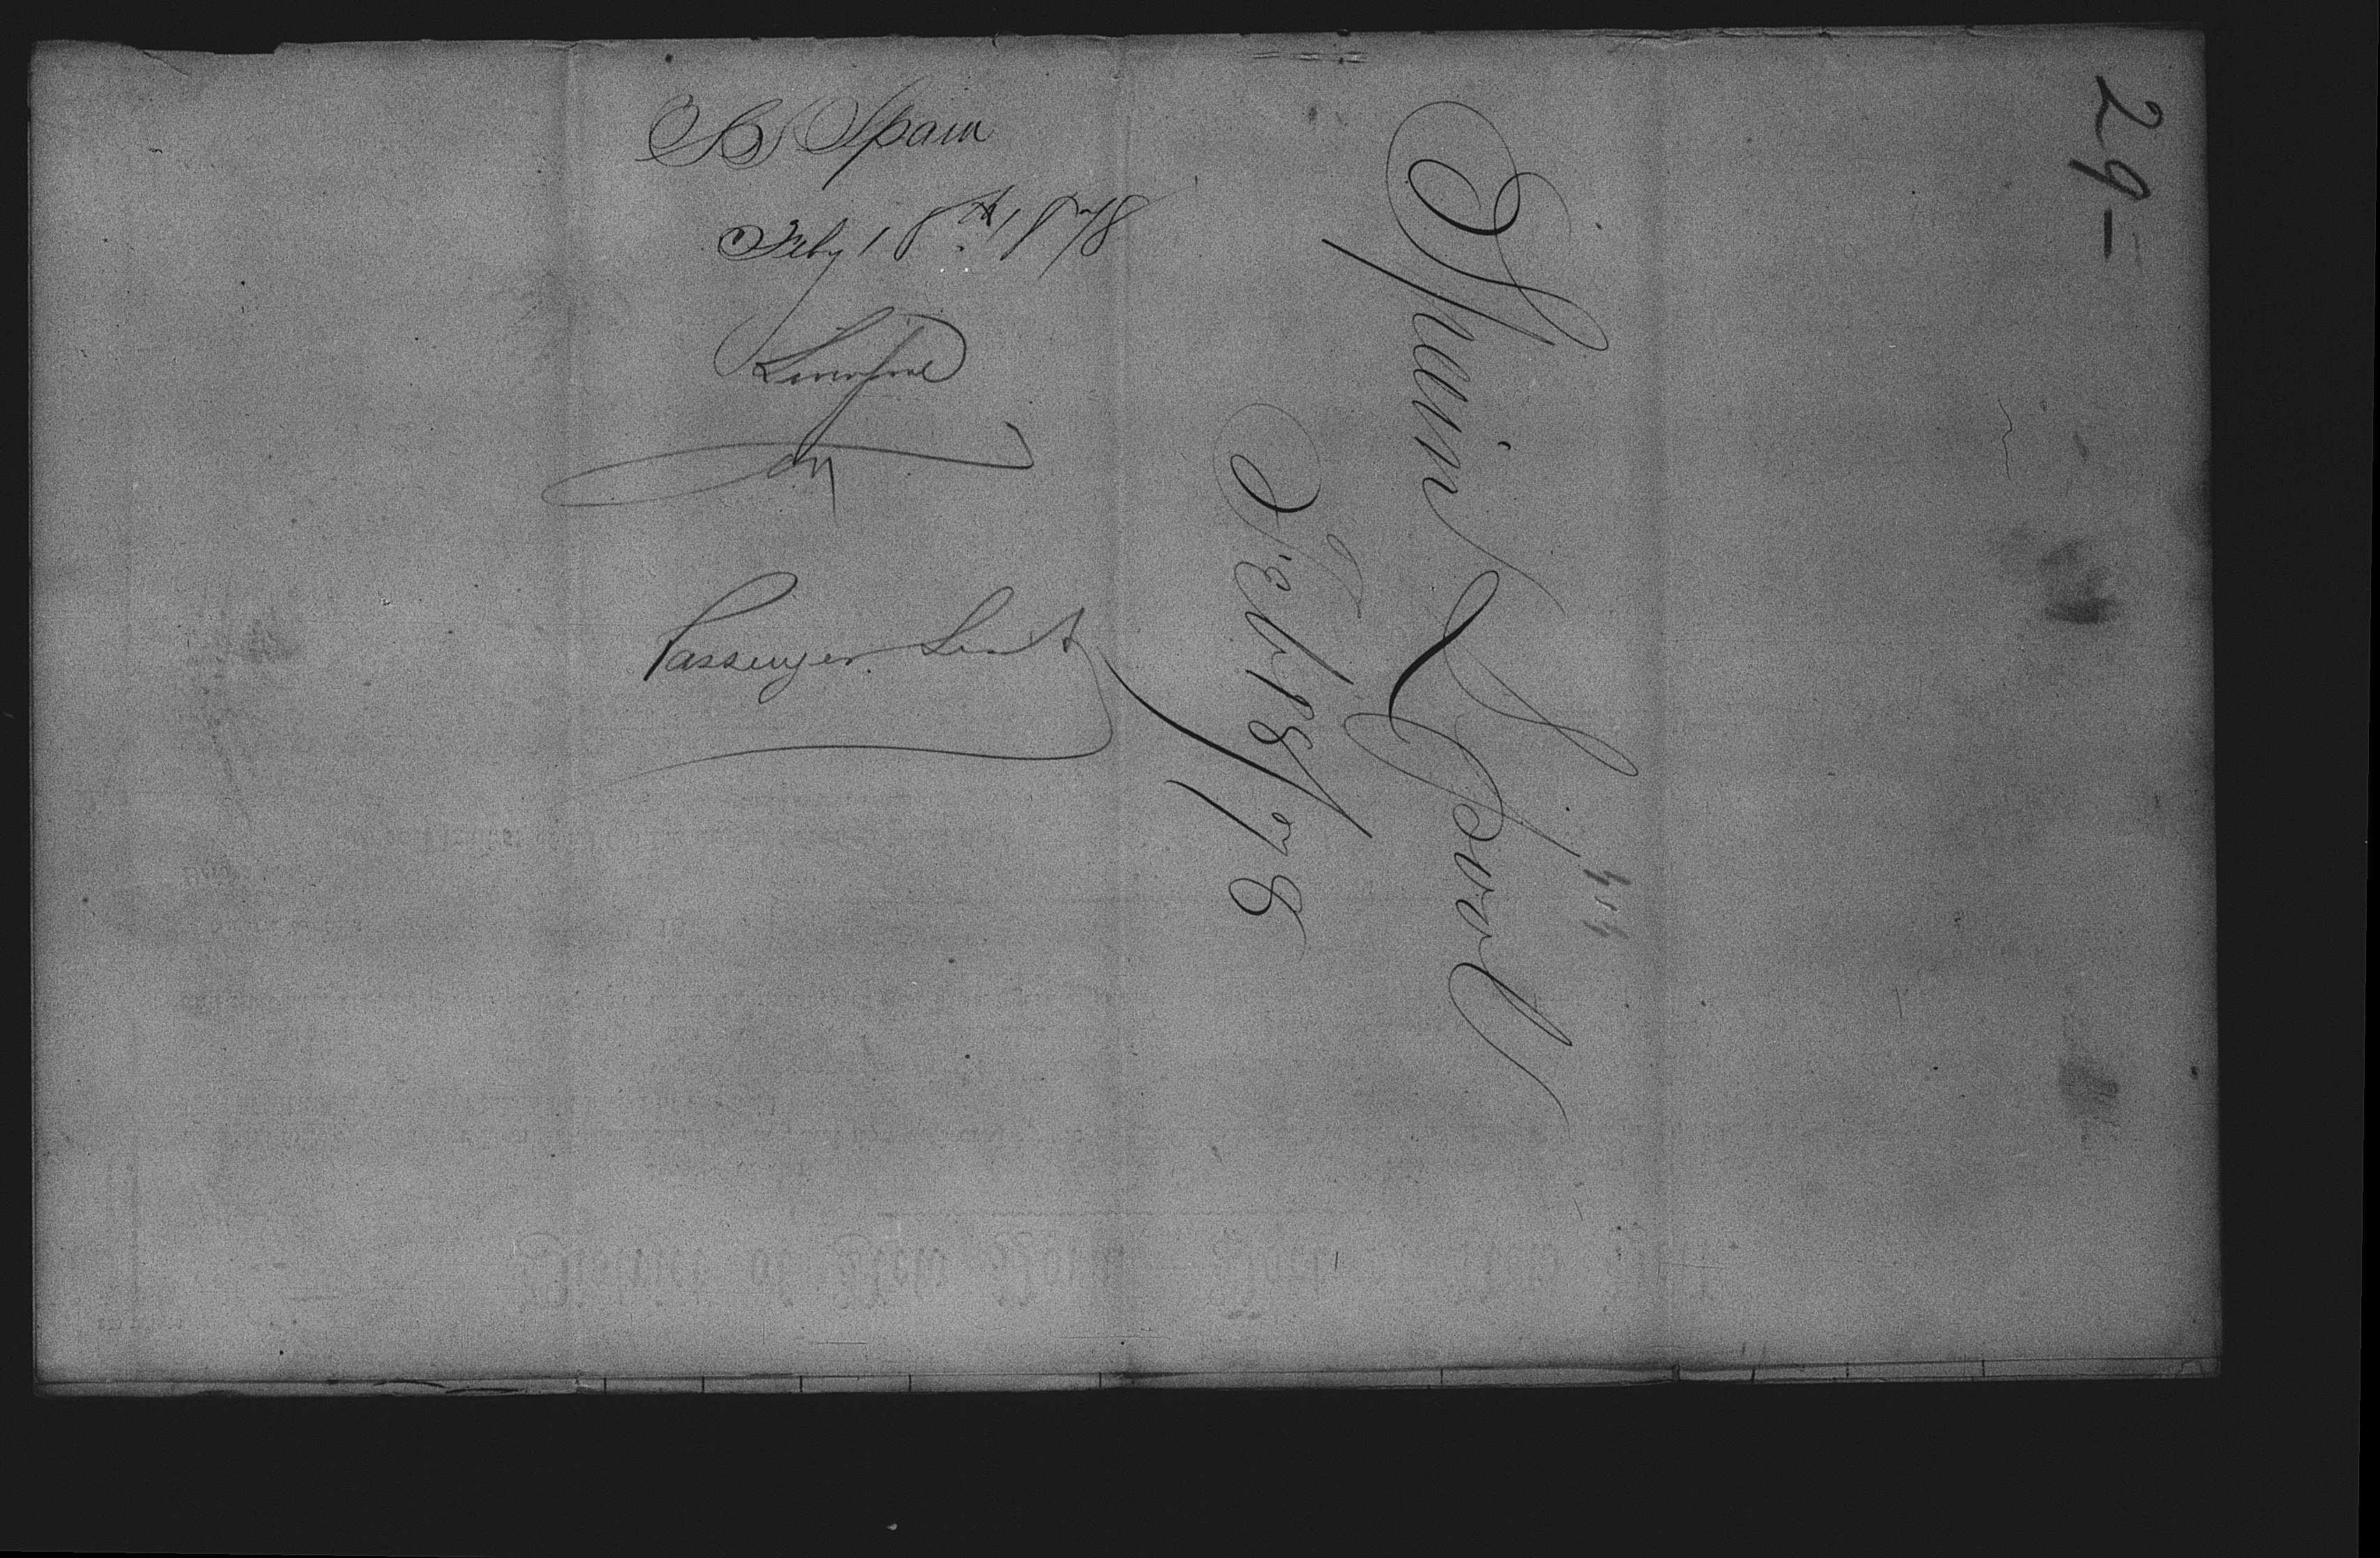 SS Spain
Feby 18th 1878
Liverpool
Passenger List
Spain L'pool
Feb 18/78
29-